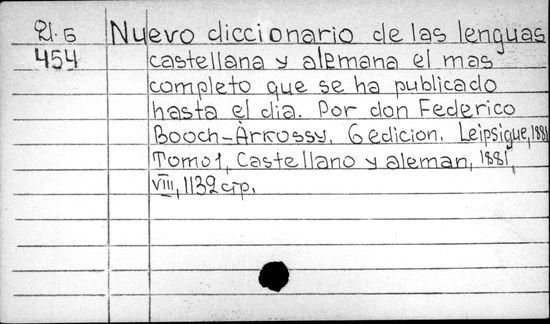 Я. 5 Nuevo diccionario de las lenguas
454 castellana y alemana el mas
completo que se ha publicado
hasta el dia. Por don Federico
Booch-Arkossy. 6 edicion. Leipsigue, 1881
Tomo 1, Castellano y aleman, 1881,
VIII, 1132 стр.